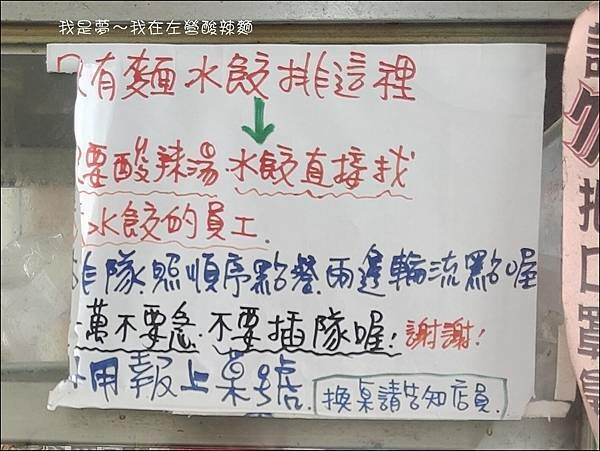 我是夢～我在左營酸辣麵
只有麵水餃排這裡
↓
要酸辣湯.水餃直接找
水餃的員工.
排隊照順序點餐.兩邊輪流點喔
萬不要急.不要插隊喔!謝謝!
用報上桌號.
換桌請告知店員.
請
勿
口
罩